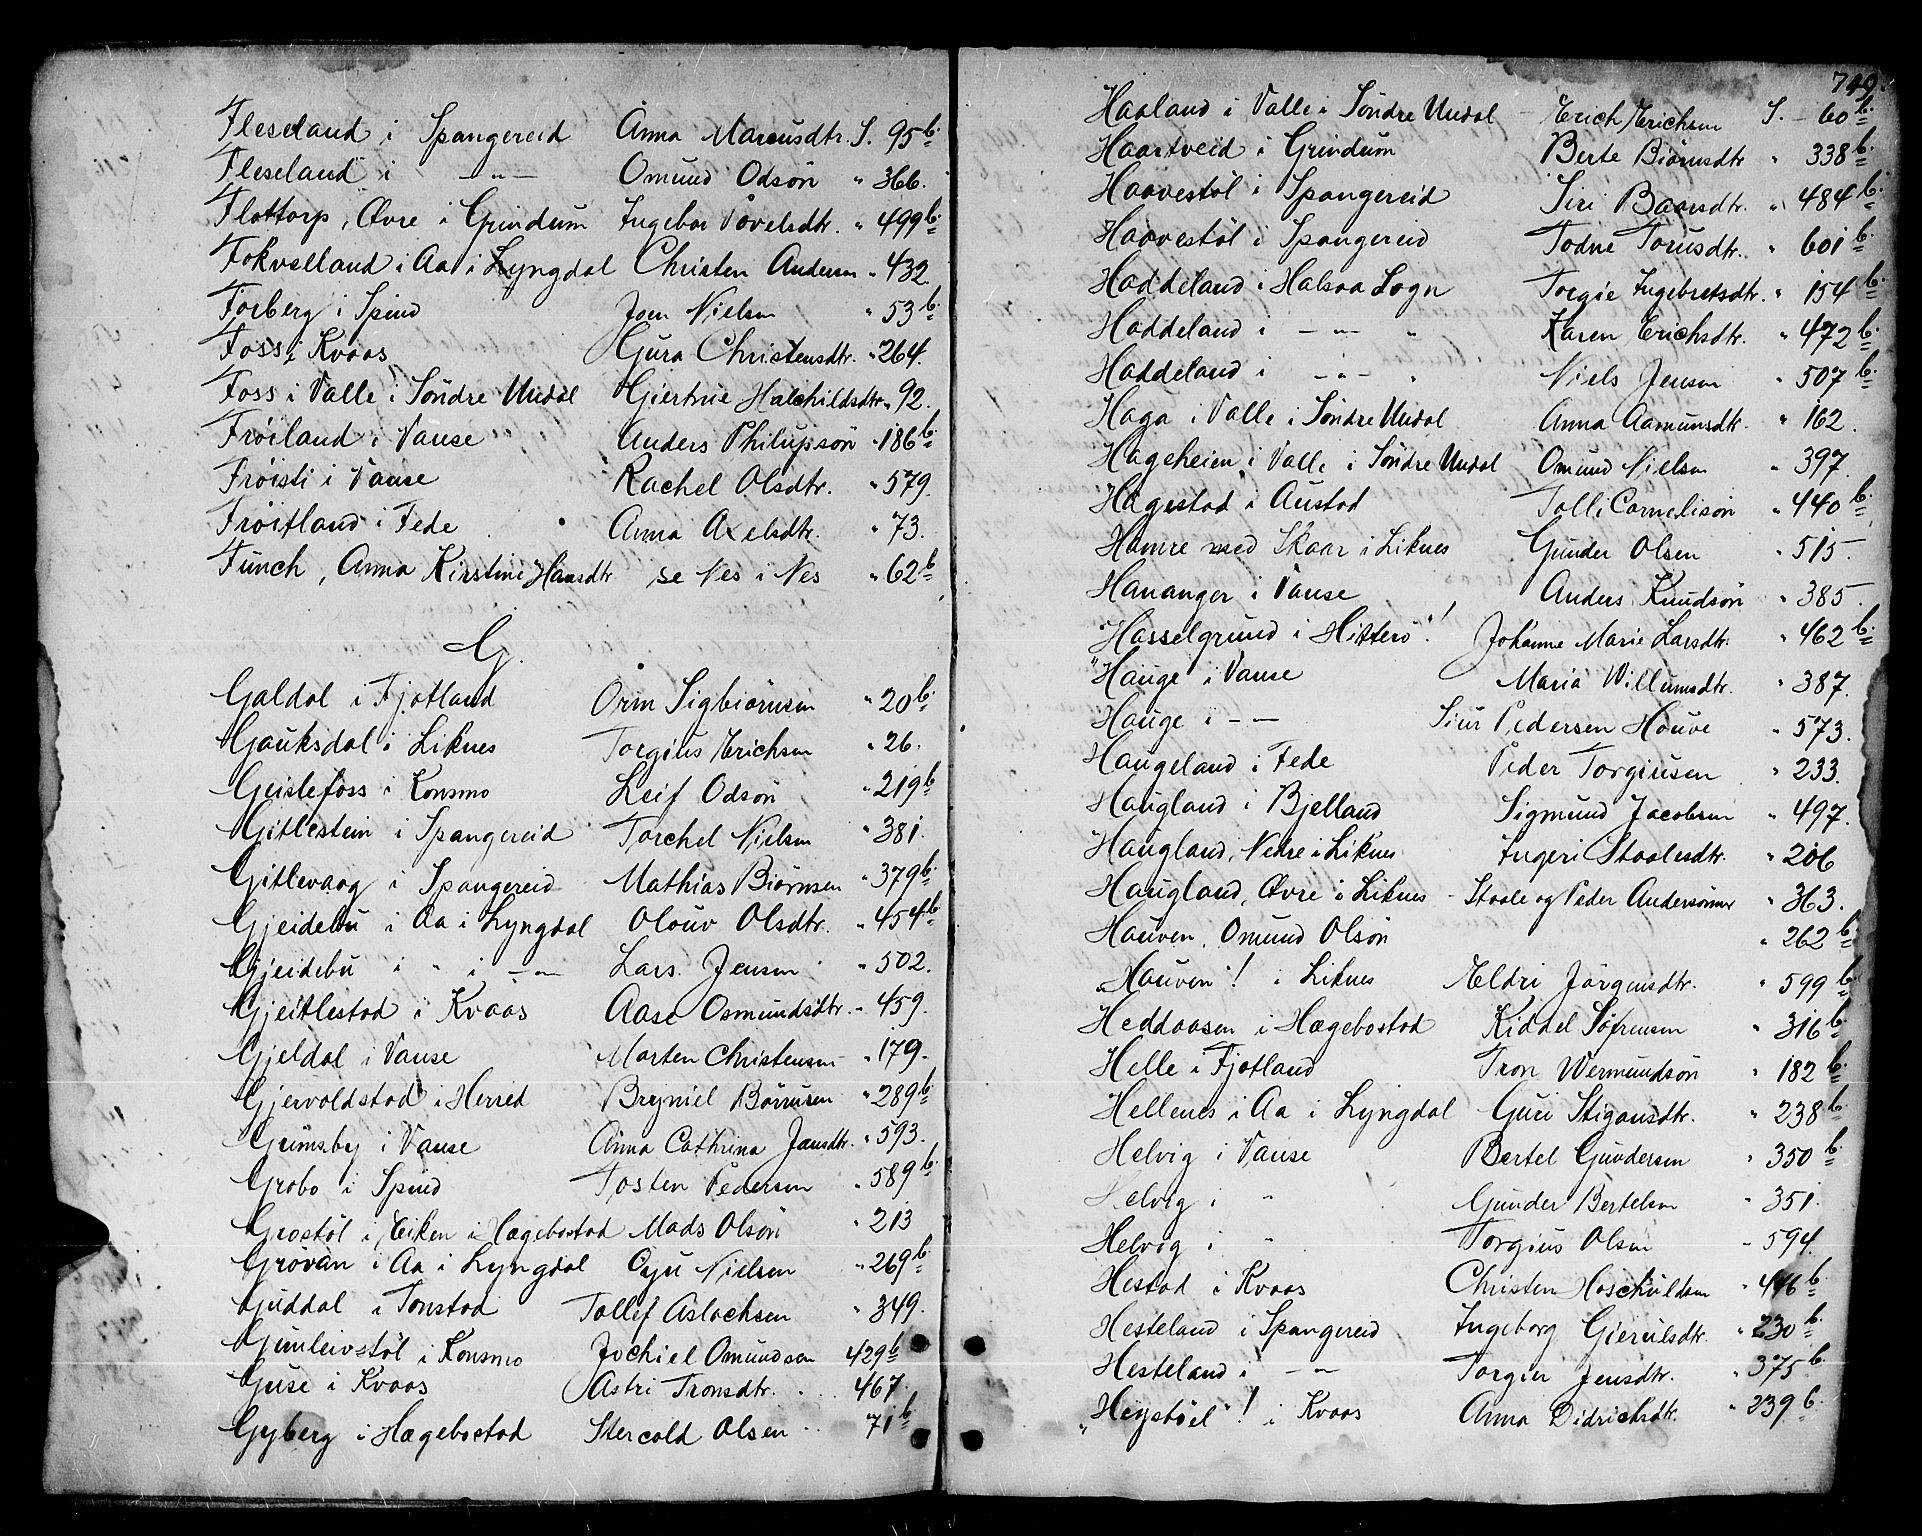 Fleseland i Spangereid Anna Marcusdtr. S. 95 b.
Fleseland i — „ — Omund Odsön „ 366.
Flottorp, Øvre i Grindum Ingebor Povelsdtr. „ 499 b.
Fokvelland i Aa i Lyngdal Christen Andersen „ 432
Forberg i Spind Joen Nielsen „ 53 b.
Foss i Kvaas Gura Christensdtr. „ 264.
Foss i Valle i Söndre Undal Giertrue Halchildsdtr. „ 92.
Fröiland i Vanse Anders Philupsön „ 186 b.
Fröisti i Vanse Rachel Olsdtr. „ 579.
Fröitland i Fede Anna Axelsdtr. „ 73.
Funch, Anna Kirstine Hansdtr se Nes i Nes „ 62 b
G.
Galdal i Fjotland Orm Sigbiörnsen „ 20 b.
Gauksdal i Liknes Torgius Erichsen „ 26.
Geislefoss i Konsmo Leif Odsön „ 219 b
Gitlestein i Spangereid Torchel Nielsen „ 381.
Gitlevaag i Spangereid Mathias Biörnsen „ 379 b.
Gjeidebu i Aa i Lyngdal Olouv Olsdtr. „ 454 b.
Gjeidebu i „ i — „ — Lars Jensen „ 502.
Gjeitlestad i Kvaas Aase Osmundsdtr. „ 459.
Gjeldal i Vanse Morten Christensen „ 179.
Gjervoldstad i Herred Bryniel Börrusen „ 289 b
Grimsby i Vanse Anna Cathrina Jansdtr. „ 593.
Grobo i Spind Tosten Pedersen „ 589 b.
Grostöl i Eiken i Hægebostad Mads Olsön „ 213
Grövan i Aa i Lyngdal Gyu Nielsen „ 269 b.
Guddal i Tonstad Tollef Aslachsen „ 349.
Gunleivstöl i Konsmo Jochiel Omundsen 429 b
Guse i Kvaas Astri Tronsdtr. . . . 467.
Gyberg i Hægebostad Stercold Olsen . . 71 b
749.
Haaland i Valle i Söndre Undal – Erich Erichsen S. – 60 b.
Haartveid i Grindum Berte Biörnsdtr „ 338 b.
Haavestöl i Spangereid Siri Baarsdtr. „ 484 b.
Haavestöl i Spangereid Todne Torusdtr. „ 601 b.
Haddeland i Halsaa Sogn Torgie Ingebretsdtr. „ 154 b.
Haddeland i — „ — „ Karen Erichsdtr. „ 472 b.
Haddeland i — „ — „ Niels Jensen „ 507 b.
Haga i Valle i Söndre Undal Anna Aamunsdtr. „ 162.
Hageheien i Valle i Söndre Undal Omund Nielsen „ 397.
Hagestad i Austad Tolli Cornelisön „ 440 b.
Hamre med Skaar i Liknes Gunder Olsen „ 515.
Hananger i Vanse Anders Knudsön „ 385.
"Hasselgrund i Hitterö"! Johanne Marie Larsdtr. „ 462 b.
"Hauge i Vanse Maria Willumsdtr. „ 387.
Hauge i — „ — Siur Pedersen Houve „ 573.
Haugeland i Fede Peder Torgiusen „ 233.
Haugland i Bjelland Sigmund Jacobsen „ 497.
Haugland, Nedre i Liknes Ingeri Staalesdtr. „ 206
Haugland, Øvre i Liknes – Staale og Peder Andersönner „ 363.
Hauven, Omund Olsön „ 262 b
„Hauven"! i Liknes Eldri Jörgensdtr. „ 599 b
Heddaasen i Hægebostad Kiddel Söfrensen „ 316 b.
Helle i Fjotland Tron Wermundsön „ 182 b.
Hellenes i Aa i Lyngdal Guri Stigansdtr. „ 238 b.
Helvig i Vanse Bertel Gundersen „ 350 b.
Helvig i „ Gunder Bertelsen „ 351.
Helvig i „ Torgius Olsen „ 594.
Hestad i Kvaas Christen Hoschuldsen „ 446 b.
Hesteland i Spangereid Ingeborg Gierulsdtr. „ 230 b.
Hesteland i — „ Torgier Jensdtr. „ 375 b.
„Heystöel"! i Kvaas Anna Didrichsdtr. „ 239 b.